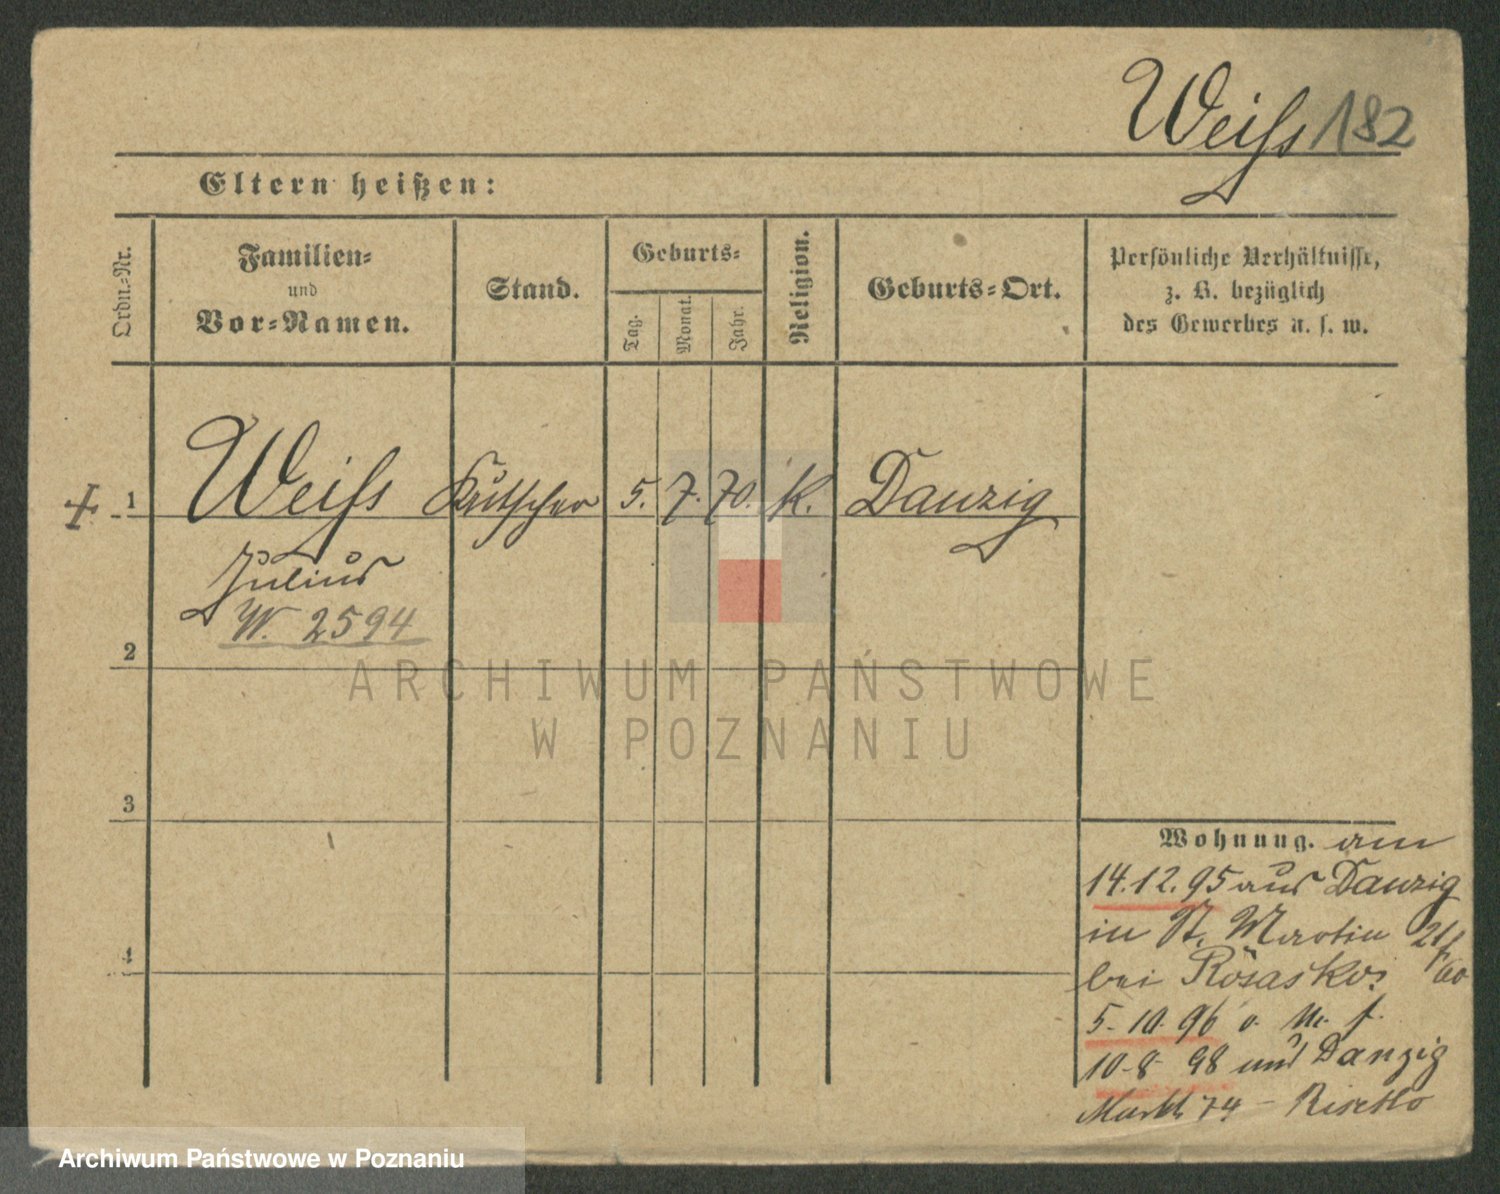 Weiſs 182
Eltern heißen:
Ordn.-Nr.
Familien-
und
Vor-Namen.
Stand.
Geburts-
Tag.
Monat.
Jahr.
Religion.
Geburts-Ort.
Persönliche Verhältnisse,
z. B. bezüglich
des Gewerbes u. s. w.
1 Weiſs Kutscher 5. 7. 70. K. Danzig
Julius
W. 2594
2
3
4
ARCHIWUM PAŃSTWOWE
W POZNANIU
Wohnung. am
14.12.95 aus Danzig
in St. Martin
bei
5.10.96
10-8 98 Danzig
Markt 74 -
Archiwum Państwowe w Poznaniu